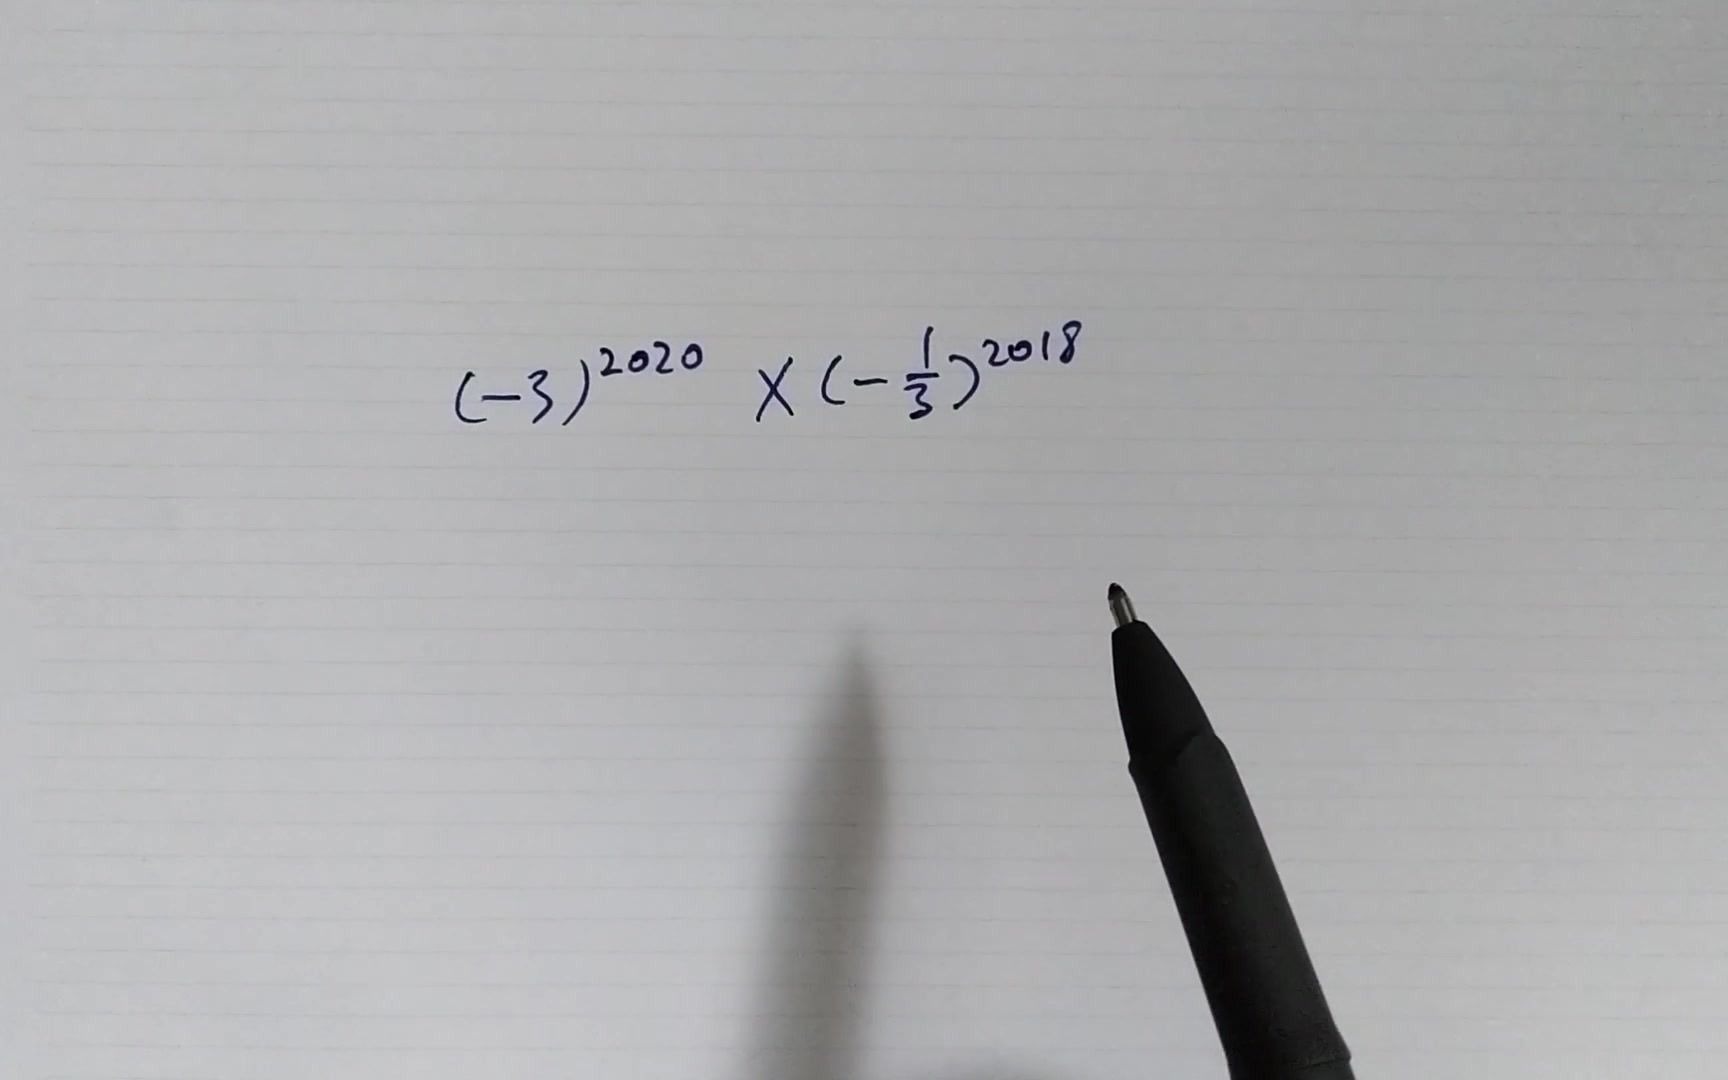 (-3)^2020 × (-1/3)^2018